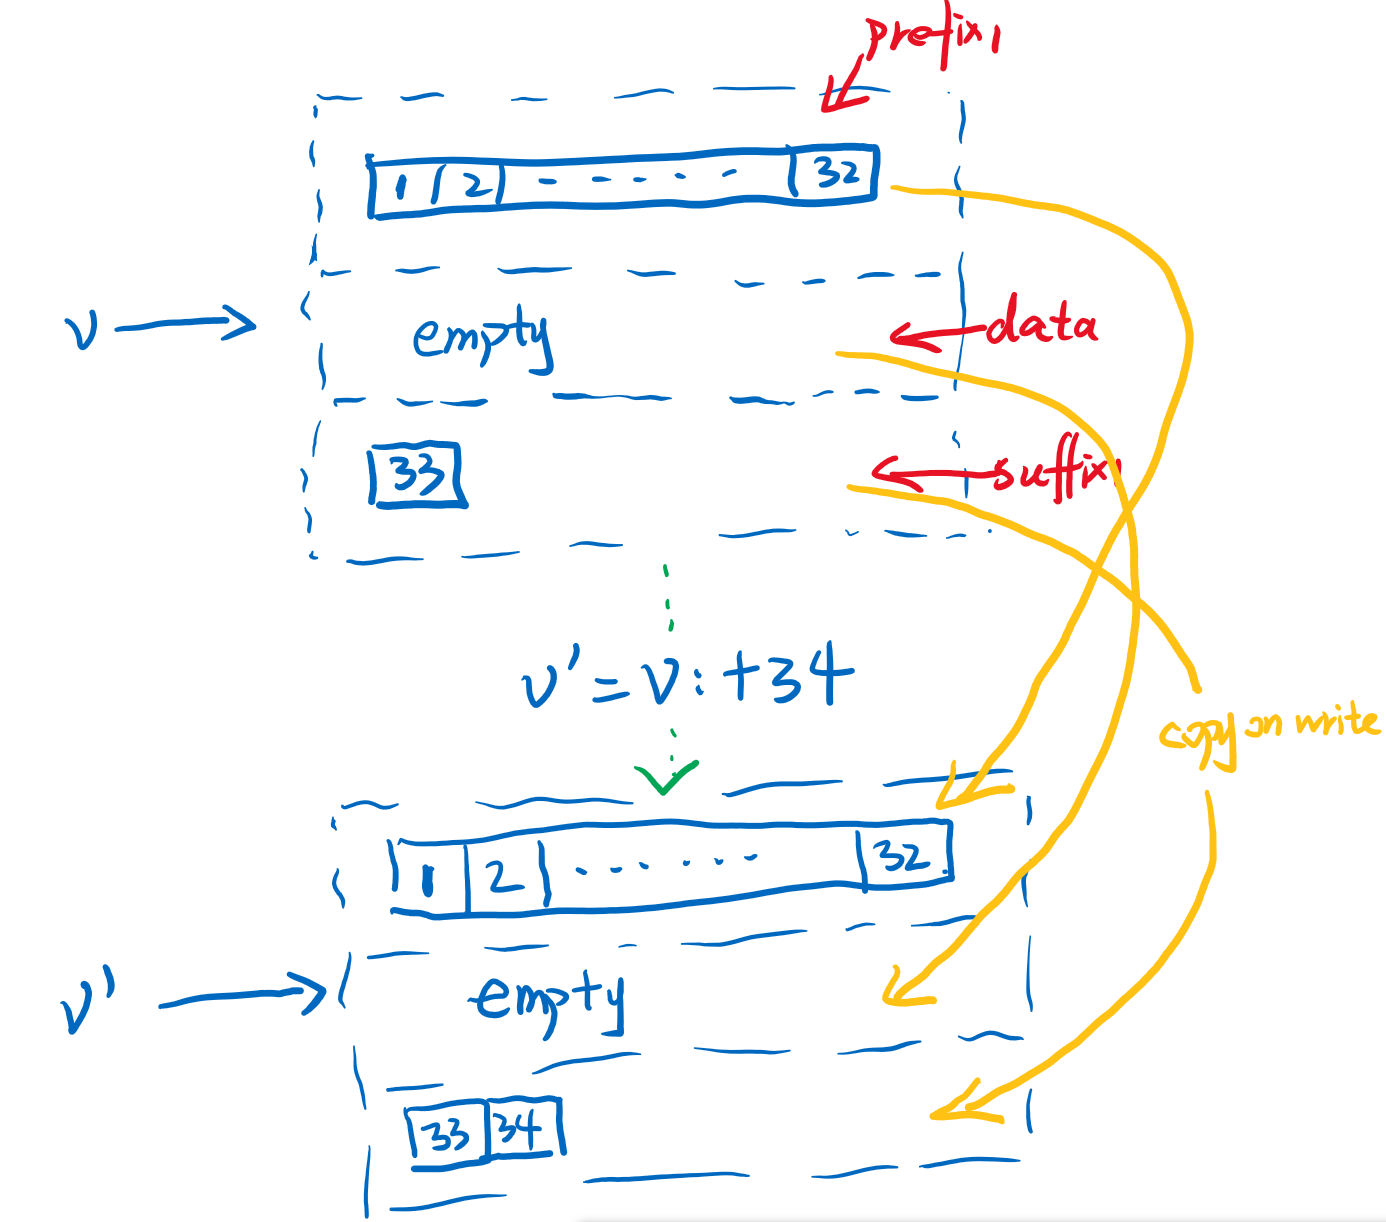 prefix1
1 2 - - - - - 32
v
empty
data
33
suffix1
v' = v :+ 34
copy on write
1 2 . . . . . . 32
v'
empty
33 34